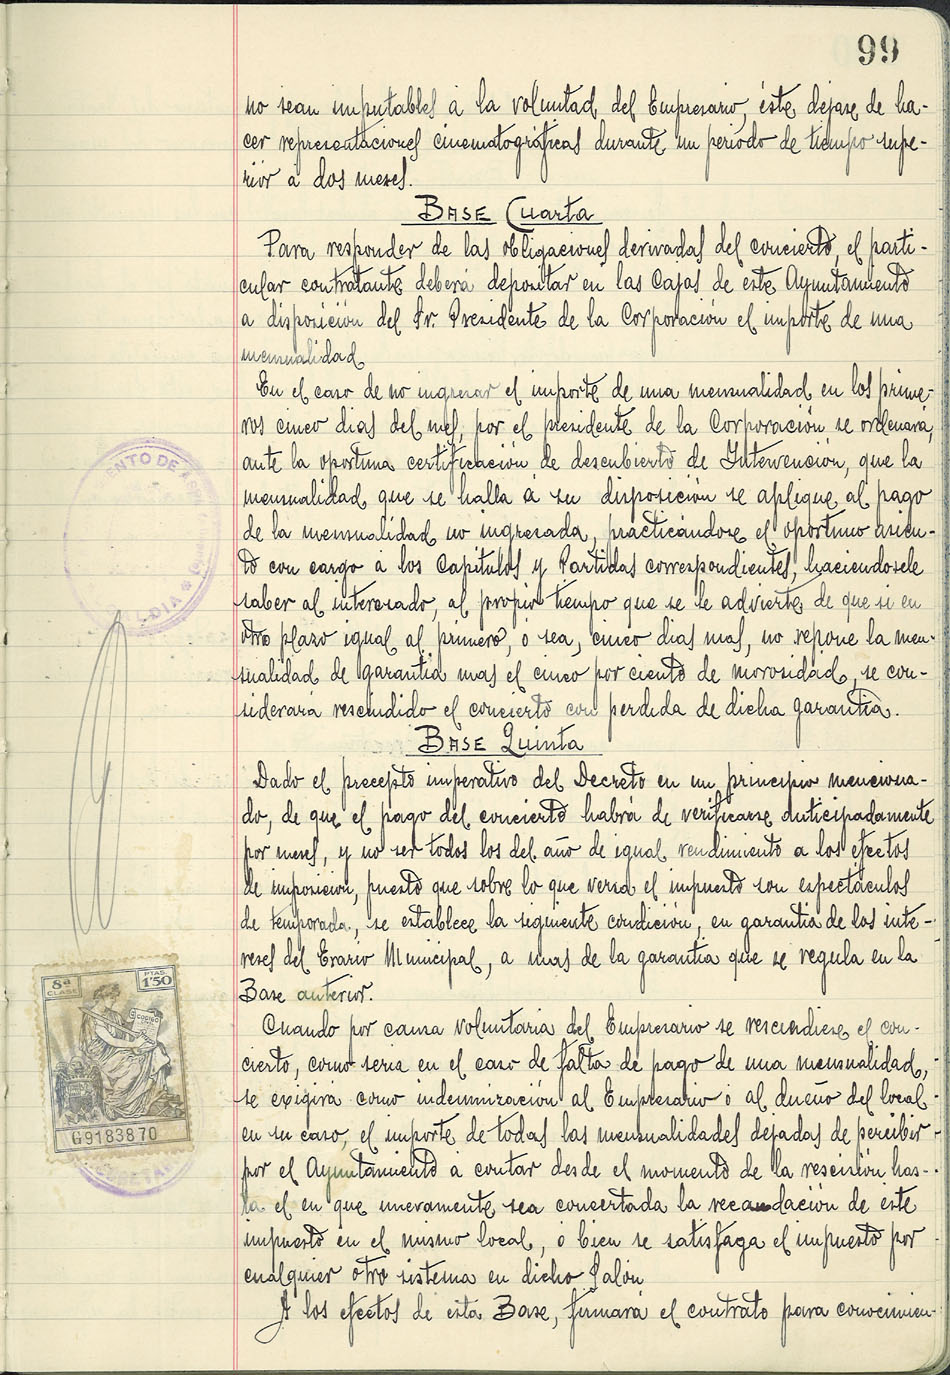 99
no sean imputables a la voluntad del Empresario, éste dejase de ha-
cer representaciones cinematográficas durante un período de tiempo supe-
rior a dos meses.
BASE Cuarta
Para responder de las obligaciones derivadas del concierto, el parti-
cular contratante deberá depositar en las Cajas de este Ayuntamiento
a disposición del Sr. Presidente de la Corporación el importe de una
mensualidad
En el caso de no ingresar el importe de una mensualidad en los prime-
ros cinco dias del mes, por el presidente de la Corporación se ordenará,
ante la oportuna certificación de descubierto de Intervención, que la
mensualidad que se halla á su disposición se aplique al pago
de la mensualidad no ingresada, practicándose el oportuno asien-
to con cargo á los Capítulos y Partidas correspondientes, haciendosele
saber al interesado, al propio tiempo que se le advierte de que si en
otro plazo igual al primero, ó sea, cinco dias mas, no repone la men-
sualidad de garantía mas el cinco por ciento de morosidad, se con-
siderará rescindido el concierto con perdida de dicha garantía.
BASE Quinta
Dado el precepto imperativo del Decreto en un principio menciona-
do, de que el pago del concierto habrá de verificarse anticipadamente
por meses, y no ser todos los del año de igual rendimiento a los efectos
de imposición, puesto que sobre lo que versa el impuesto son espectáculos
de temporada, se establece la siguiente condición, en garantía de los inte-
reses del Erario Municipal, a mas de la garantía que se regula en la
Base anterior.
Cuando por causa voluntaria del Empresario se rescindiese el con-
cierto, como seria en el caso de falta de pago de una mensualidad,
se exigirá como indemnización al Empresario ó al dueño del local
en su caso, el importe de todas las mensualidades dejadas de percibir
por el Ayuntamiento á contar desde el momento de la rescisión has-
ta el en que nuevamente sea concertada la recaudación de este
impuesto en el mismo local, ó bien se satisfaga el impuesto por
cualquier otro sistema en dicho Salón
A los efectos de esta Base, firmará el contrato para conocimien-
ENTO DE
ALDIA
8ª CLASE
PTAS. 1'50
CODIGO
G9183870
SECRETAR